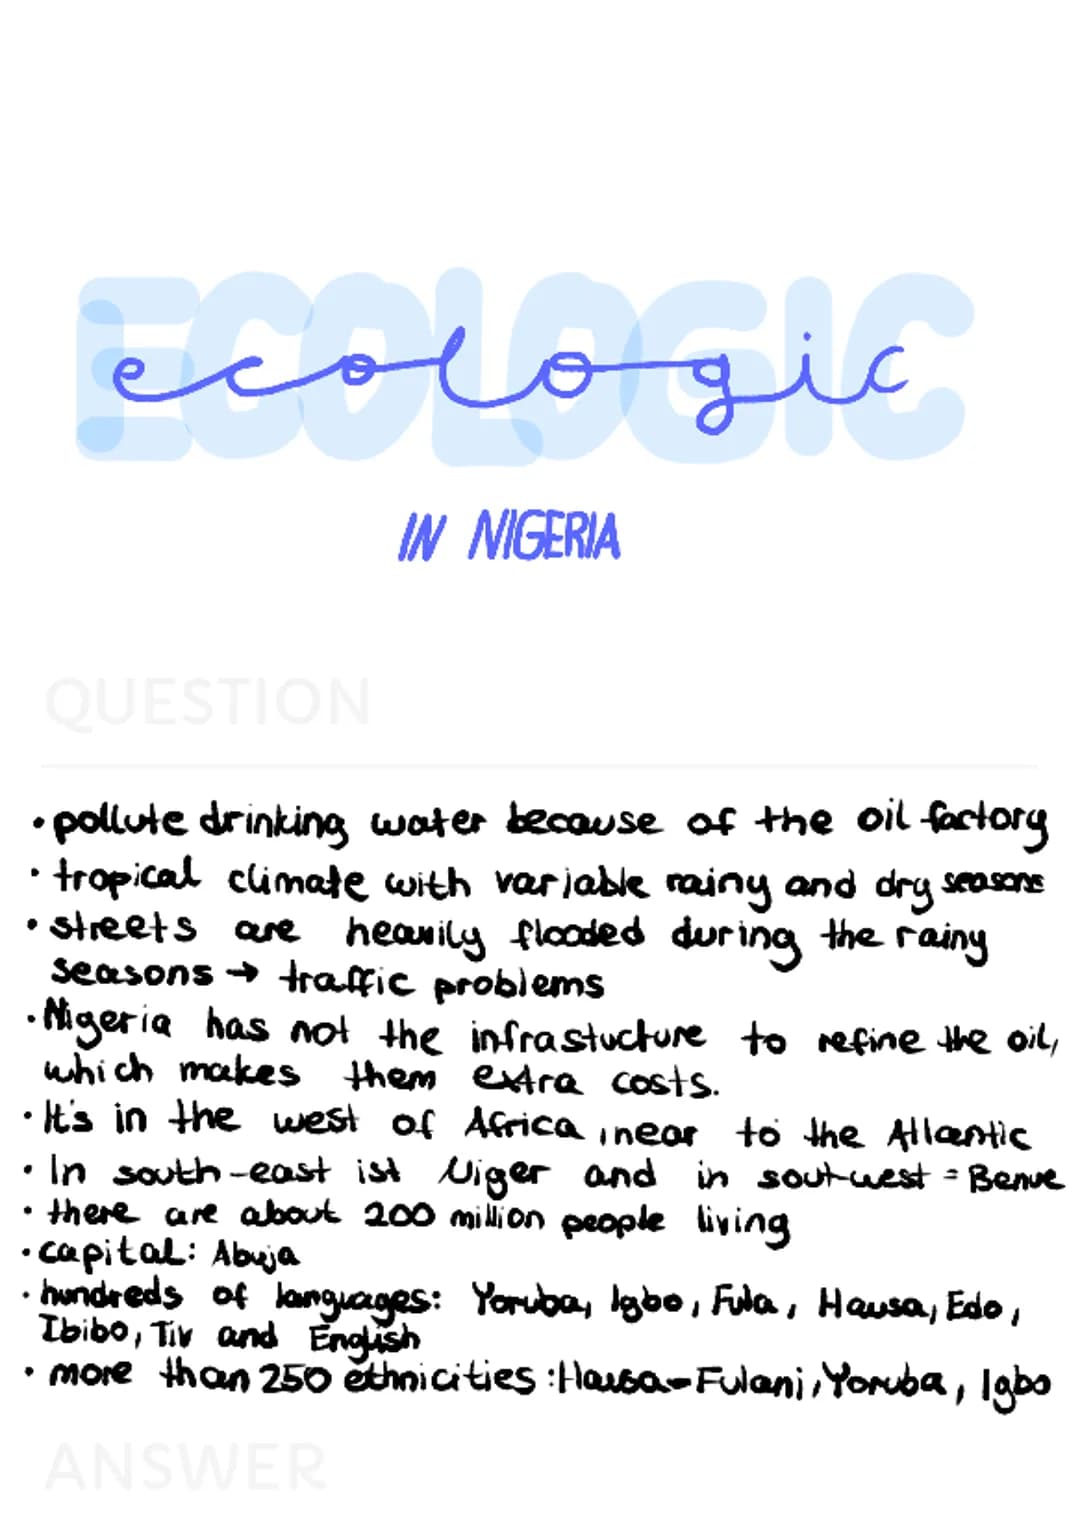 ECOLOGIC
ecologic
IN NIGERIA
QUESTION
• pollute drinking water because of the oil factory
• tropical climate with variable rainy and dry seasons
• streets are heavily flooded during the rainy
seasons → traffic problems
• Nigeria has not the infrastucture to refine the oil,
which makes them extra costs.
• It's in the west of Africa, near to the Atlantic
• In south-east ist Niger and in sout-west = Benue
• there are about 200 million people living
• capital: Abuja
• hundreds of languages: Yoruba, Igbo, Fula, Hausa, Edo,
Ibibo, Tiv and English
• more than 250 ethnicities: Hausa-Fulani, Yoruba, Igbo
ANSWER